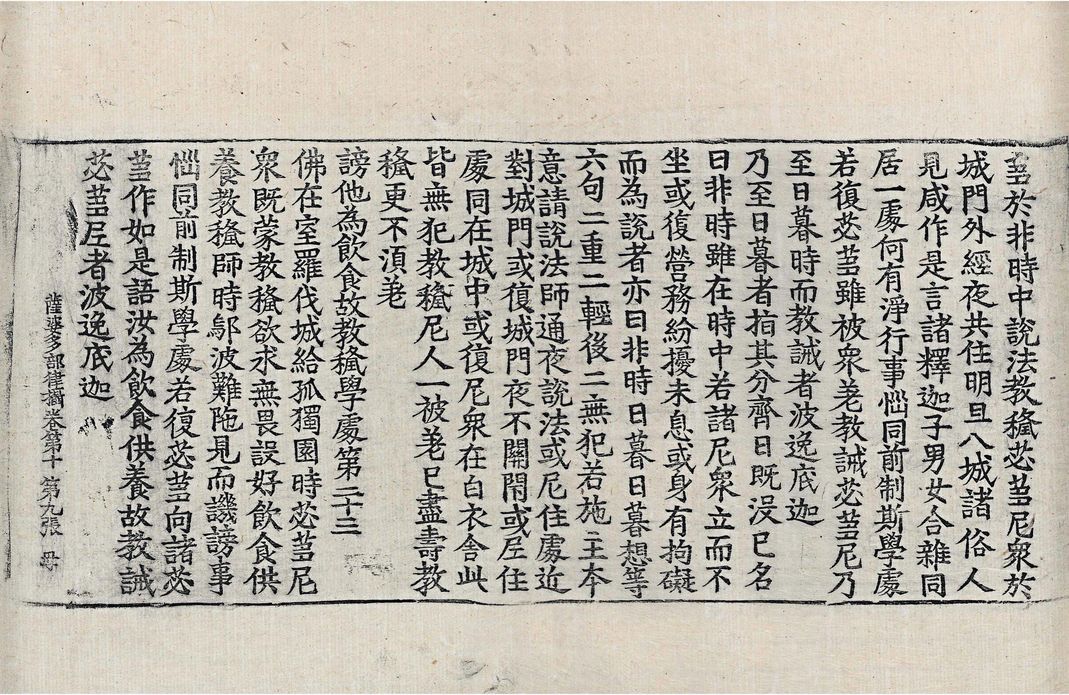 芻於非時中說法教授苾芻尼衆於
城門外經夜共住明旦入城諸俗人
見咸作是言諸釋迦子男女合雜同
居一處何有淨行事惱同前制斯學處
若復苾芻雖被衆差教誡苾芻尼乃
至日暮時而教誡者波逸底迦
乃至日暮者指其分齊日既没已名
曰非時雖在時中若諸尼衆立而不
坐或復營務紛擾未息或身有拘礙
而為說者亦曰非時日暮日暮想等
六句二重二輕後二無犯若施主本
意請說法師通夜說法或尼住處近
對城門或復城門夜不關閇或尼住
處同在城中或復尼衆在白衣舍此
皆無犯教授尼人一被差已盡壽教
授更不湏差
謗他為飲食故教授學處第二十三
佛在室羅伐城給孤獨園時苾芻尼
衆既蒙教授欲求無畏設好飲食供
養教授師時鄔波難陁見而譏謗事
惱同前制斯學處若復苾芻向諸苾
芻作如是語汝為飲食供養故教誡
苾芻尼者波逸底迦
薩婆多部律攝卷第十 第九張 毋